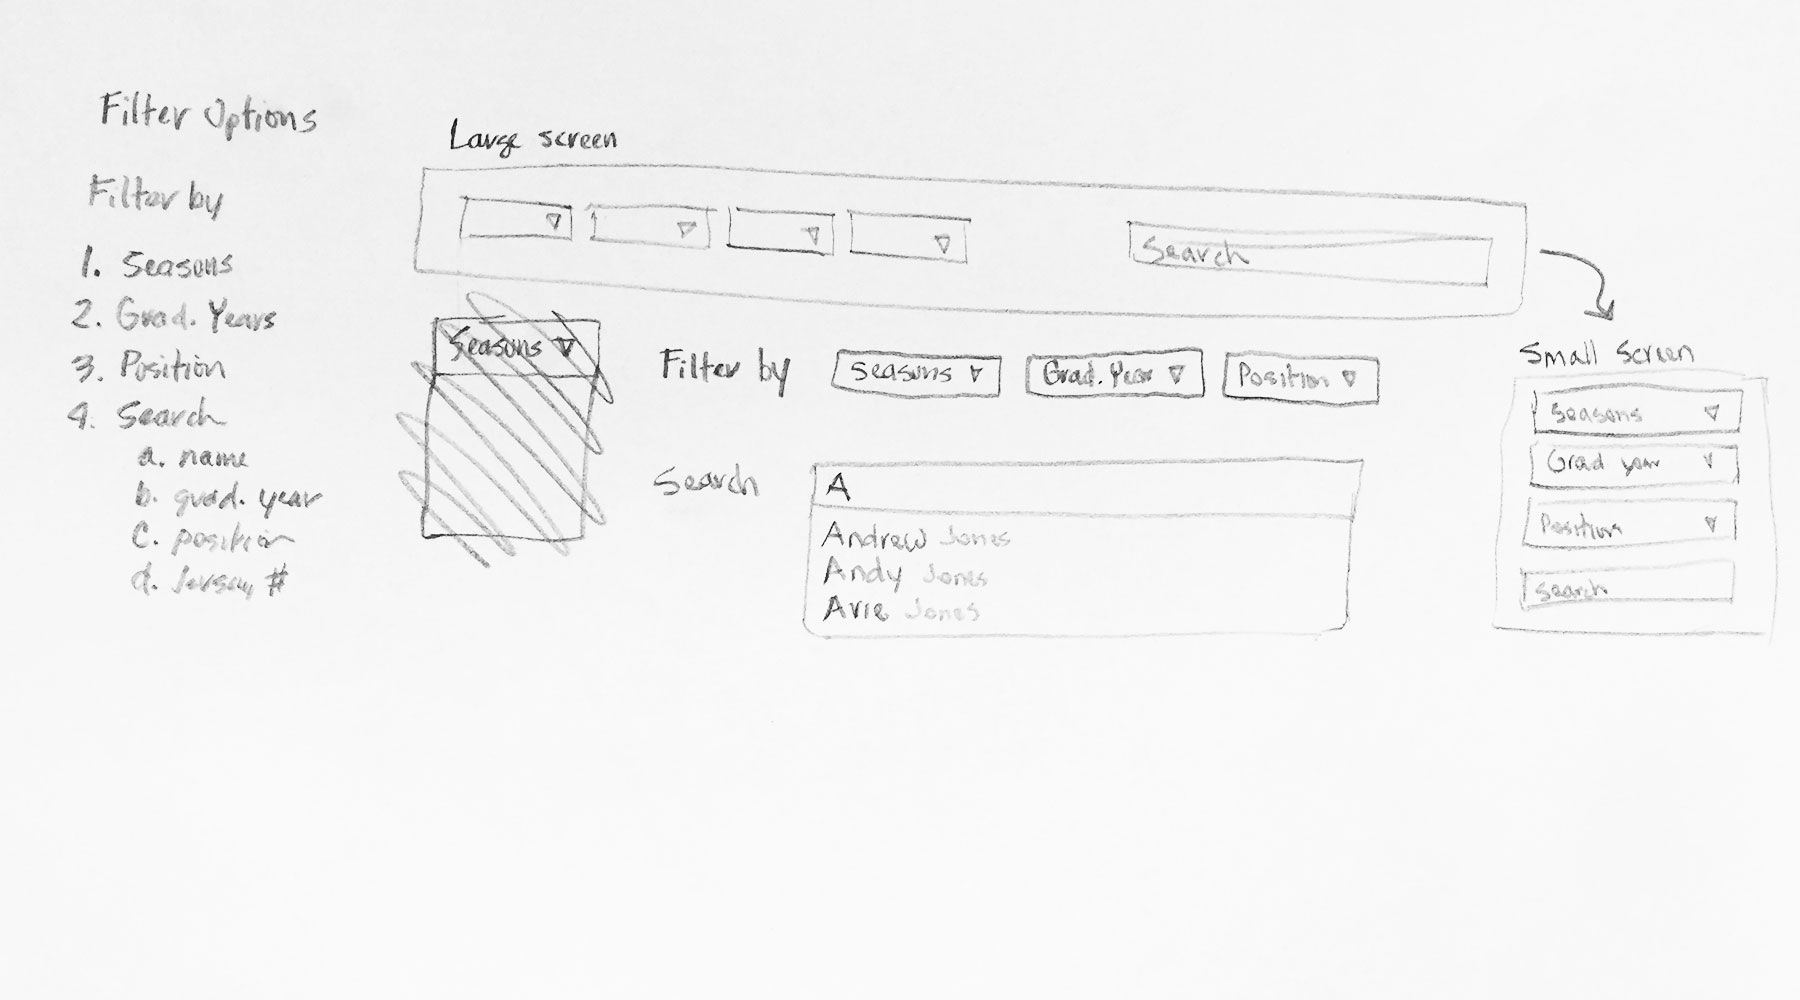 Filter Options
Filter by
1. Seasons
2. Grad. Years
3. Position
4. Search
a. name
b. grad. year
c. position
d. Jersey #
Large screen
Search
Seasons
Filter by Seasons Grad. Year Position
Search
A
Andrew Jones
Andy Jones
Arie Jones
Small Screen
Seasons
Grad year
Position
Search